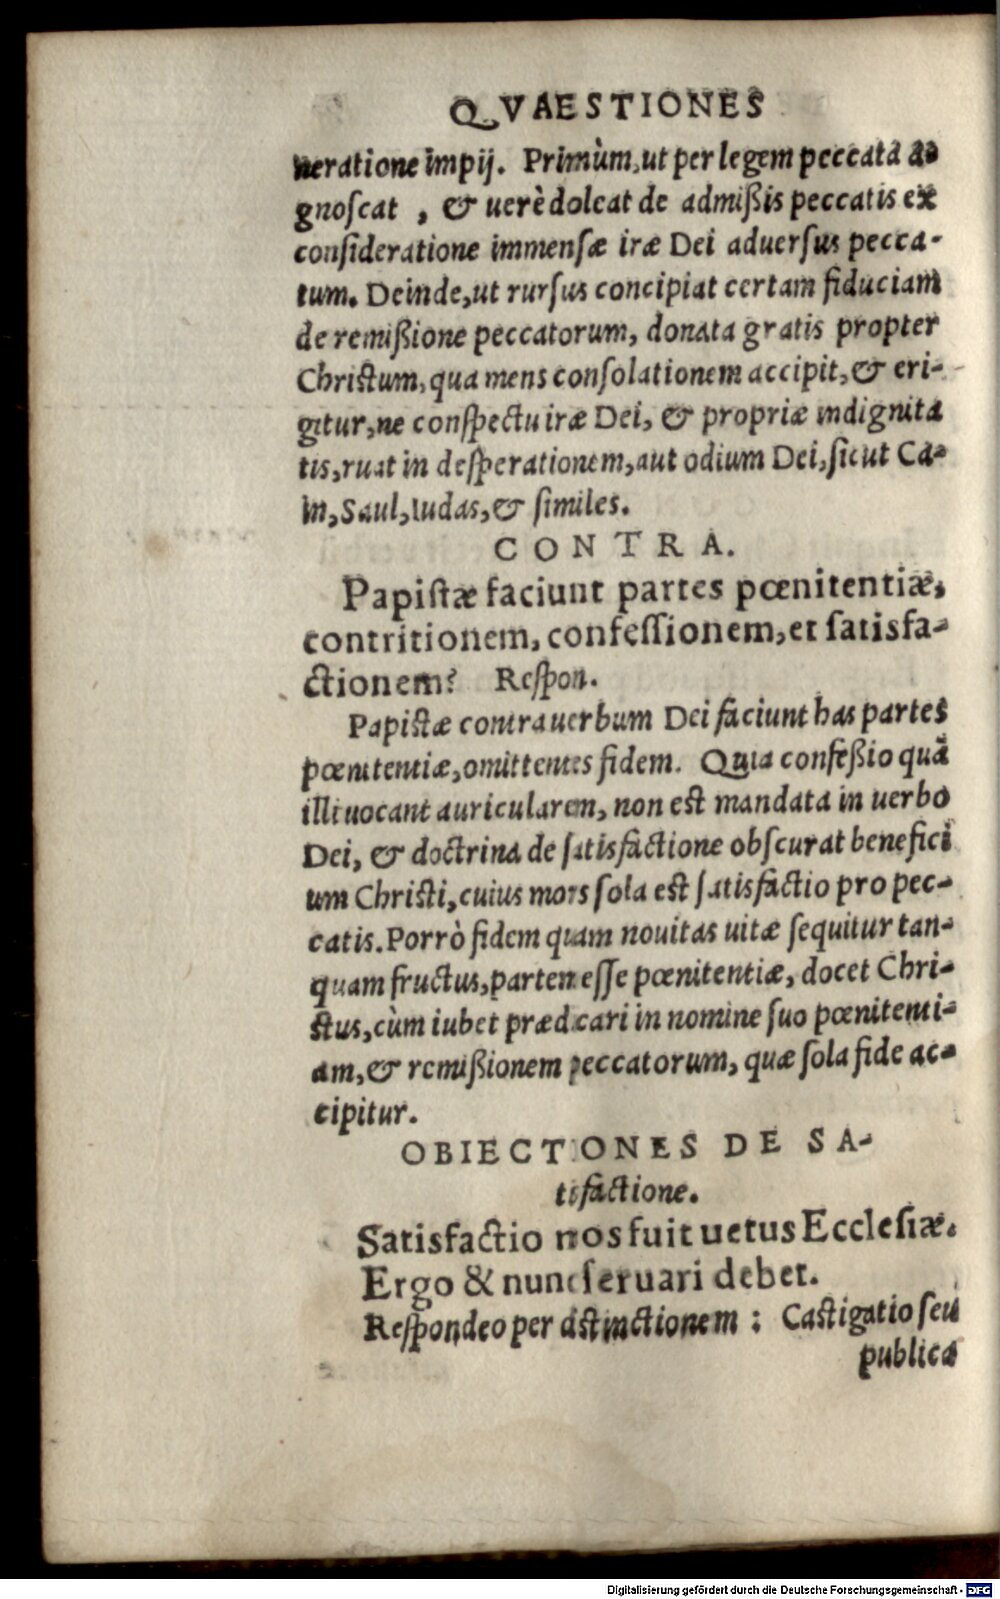 QVAESTIONES
neratione impij. Primùm, ut per legem peccata a-
gnoscat, & uerè doleat de admißis peccatis ex
consideratione immensæ iræ Dei aduersus pecca-
tum. Deinde, ut rursus concipiat certam fiduciam
de remißione peccatorum, donata gratis propter
Christum, qua mens consolationem accipit, & eri-
gitur, ne conspectu iræ Dei, & propriæ indignita
tis, ruat in desperationem, aut odium Dei, sicut Ca-
in, Saul, Iudas, & similes.
CONTRA.
Papistæ faciunt partes pœnitentiæ,
contritionem, confessionem, et satisfa-
ctionem? Respon.
Papistæ contra uerbum Dei faciunt has partes
pœnitentiæ, omittentes fidem. Quia confeßio quã
illi uocant auricularem, non est mandata in uerbo
Dei, & doctrina de satisfactione obscurat benefici
um Christi, cuius mors sola est satisfactio pro pec-
catis. Porrò fidem quam nouitas uitæ sequitur tan-
quam fructus, partem esse pœnitentiæ, docet Chri-
stus, cùm iubet prædicari in nomine suo pœnitenti-
am, & remißionem peccatorum, quæ sola fide ac-
cipitur.
OBIECTIONES DE SA-
tisfactione.
Satisfactio nos fuit uetus Ecclesiæ.
Ergo & nunc seruari debet.
Respondeo per distinctionem: Castigatio seu
publica
Digitalisierung gefördert durch die Deutsche Forschungsgemeinschaft - DFG